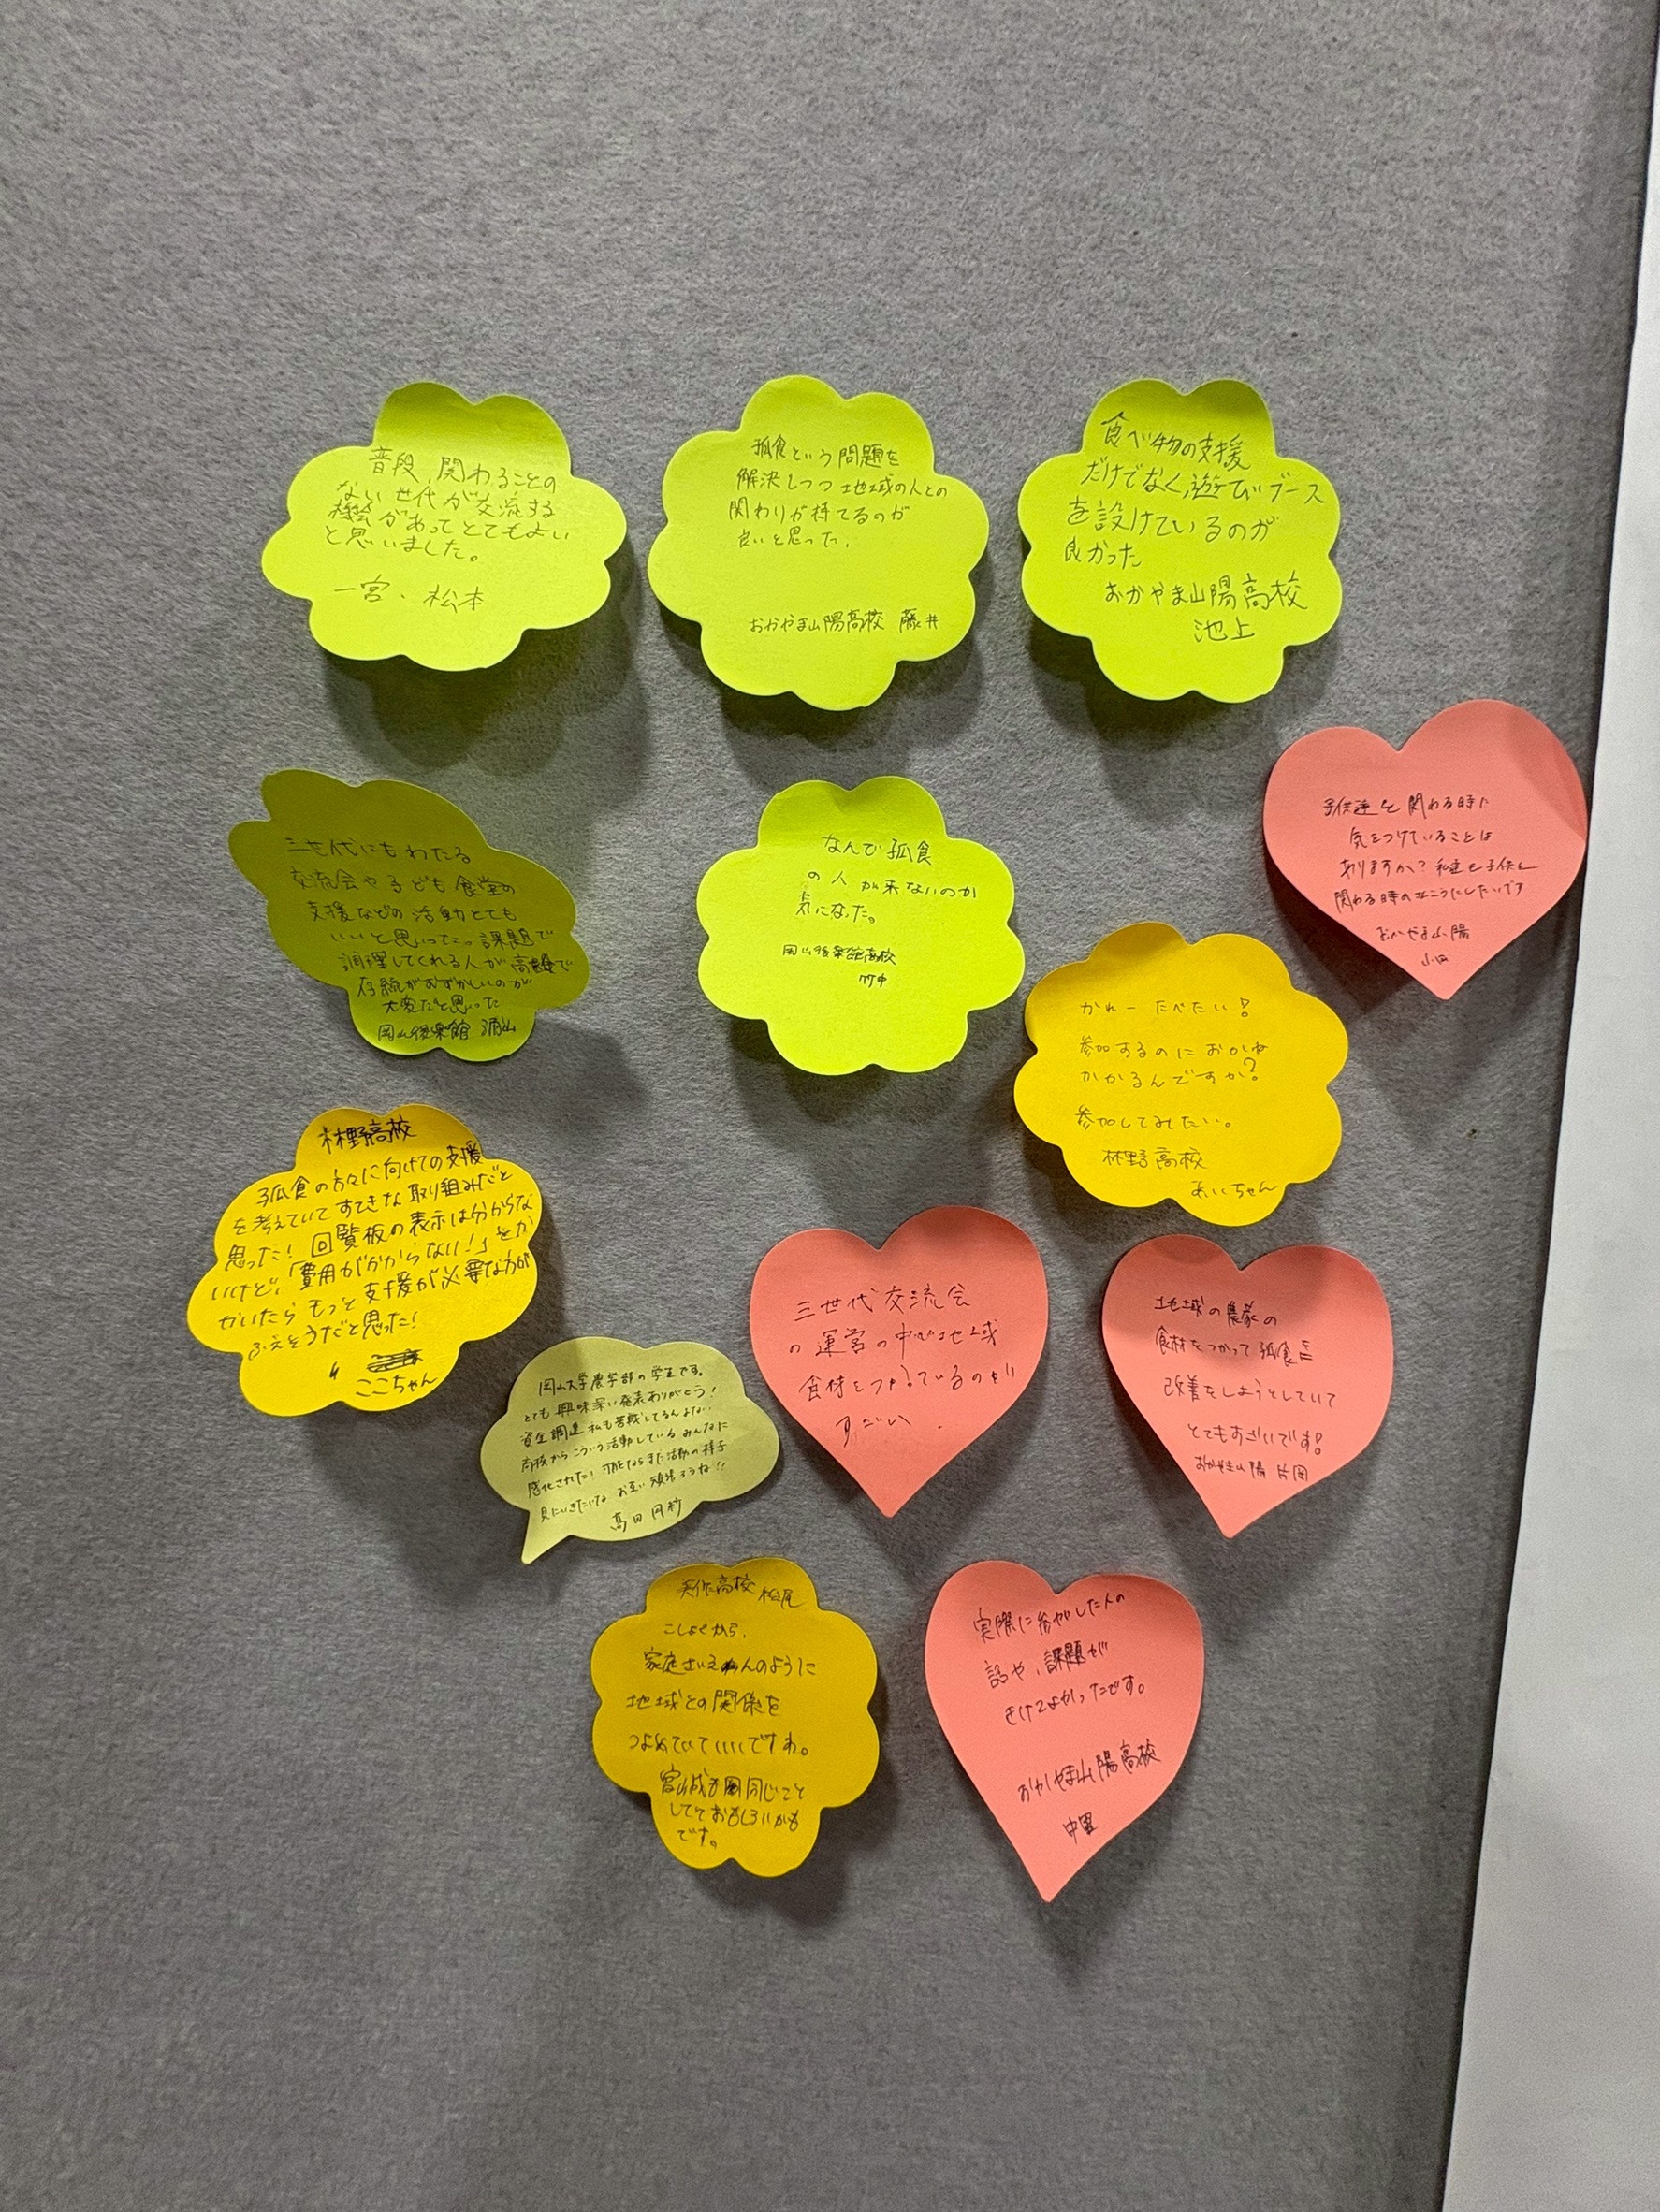 普段、関わることの
ない世代が交流する
機会があってとてもよい
と思いました。
一宮、松本
孤食という問題を
解決しつつ地域の人との
関わりが持てるのが
良いと思った。
おかやま山陽高校 藤井
食べ物の支援
だけでなく、遊びブース
を設けているのが
良かった
おかやま山陽高校
池上
子供達と関わる時に
気をつけていることは
ありますか?私達も子供と
関わる時の
おかやま山陽
三世代にもわたる
交流会や子ども食堂の
支援などの活動とても
いいと思った。課題で
調理してくれる人が高齢で
存続がむずかしいのが
大変だと思った
岡山後楽館
なんで孤食
の人が来ないのか
気になった。
岡山後楽館高校
竹中
かれーたべたい!
参加するのにおかね
かかるんですか?
参加してみたい。
林野高校
あいちゃん
林野高校
孤食の方々に向けての支援
を考えていてすてきな取り組みだと
思った!回覧板の表示は分からな
いけど、「費用がかからない!」とか
かいたらもっと支援が必要な方が
ふえそうだと思った!
ここちゃん
三世代交流会
の運営の中で地域
食材をつかっているのが
すごい.
地域の農家の
食材をつかって孤食を
改善をしようとしていて
とてもすごいです!
おかやま山陽 片岡
岡山大学農学部の学生です。
とても興味深い発表ありがとう!
資金調達私も苦戦してるんよな…
高校からこういう活動しているみんなに
感化されたよ!可能ならまた活動の様子
見にいきたいな お互い頑張ろうね!!
高田 円紗
美作高校 松尾
こしょくから、
家庭さいえんのように
地域との関係を
つよめていていいですね。
同じこと
してておもしろいかも
です。
実際に参加した人の
話や、課題が
きけてよかったです。
おかやま山陽高校